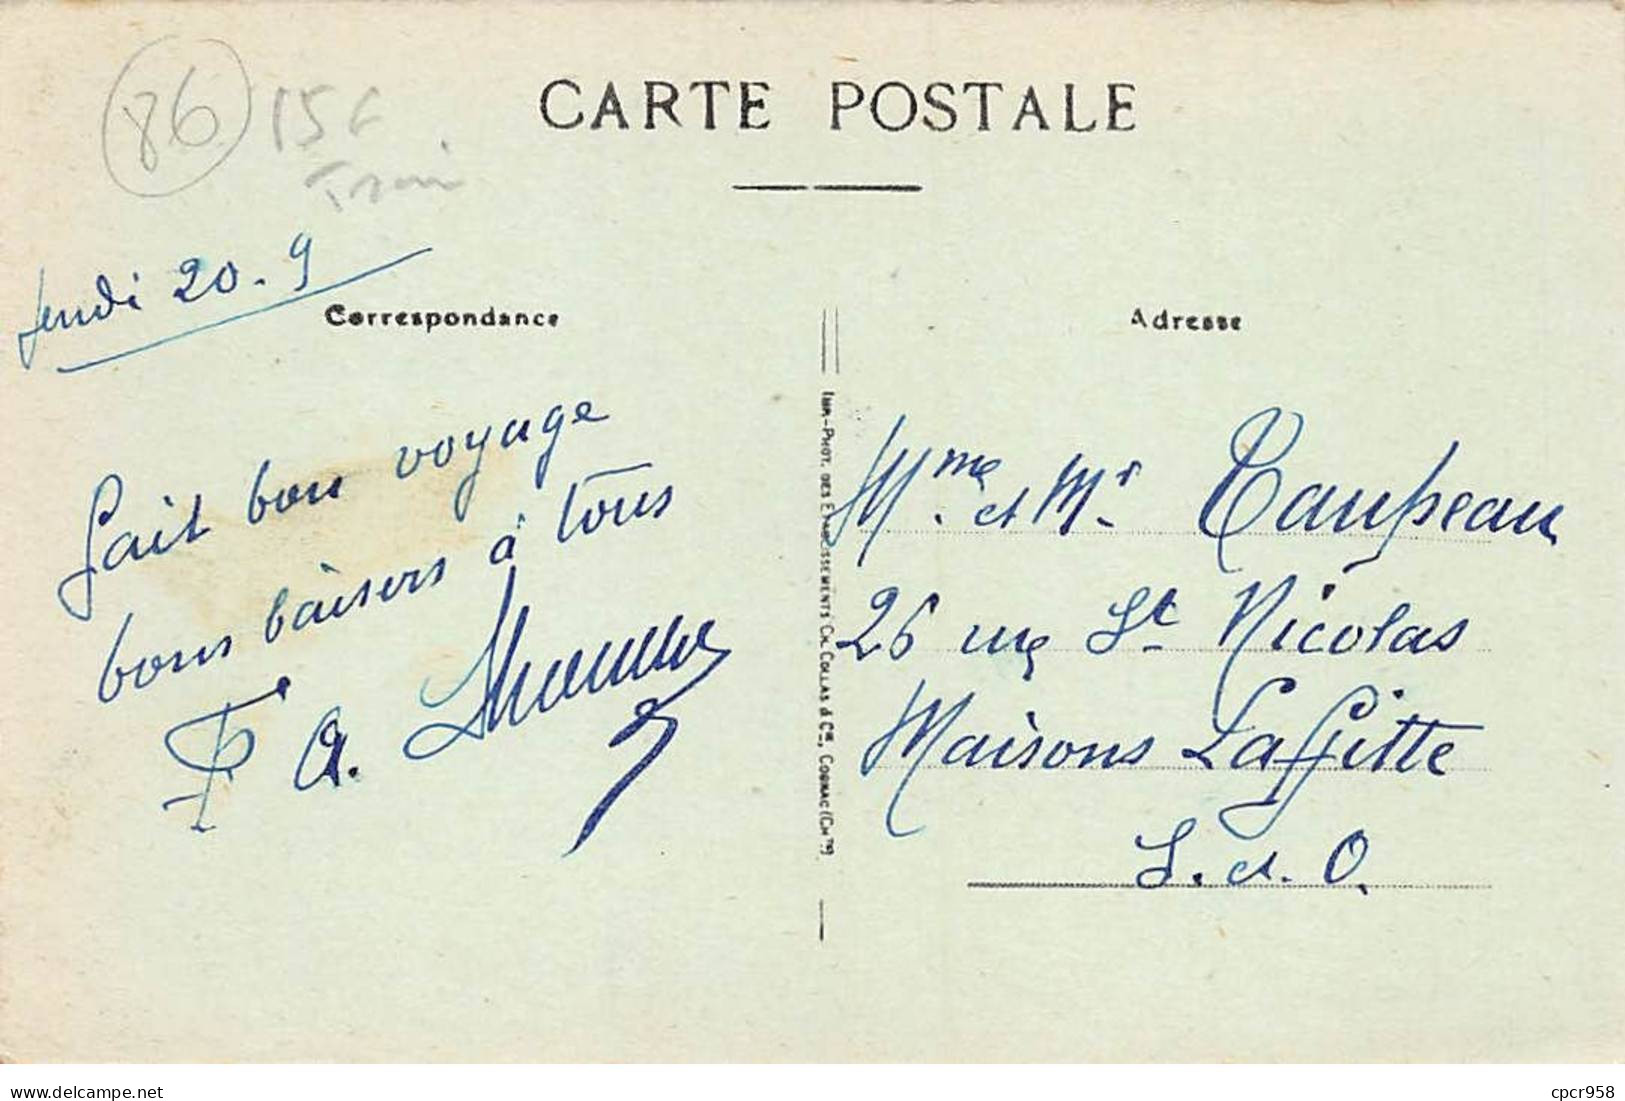 86
15€
Train
CARTE POSTALE
Jeudi 20.9
Correspondance
Fait bon voyage
bons baisers à tous
A.
Imp.-Phot. des Etablissements Ch. Collas & Cie, Cognac (Chte)
Adresse
Mme et Mr Taupeau
26 rue St Nicolas
Maisons Laffitte
S. et. O.
delcampe.net
cpcr958